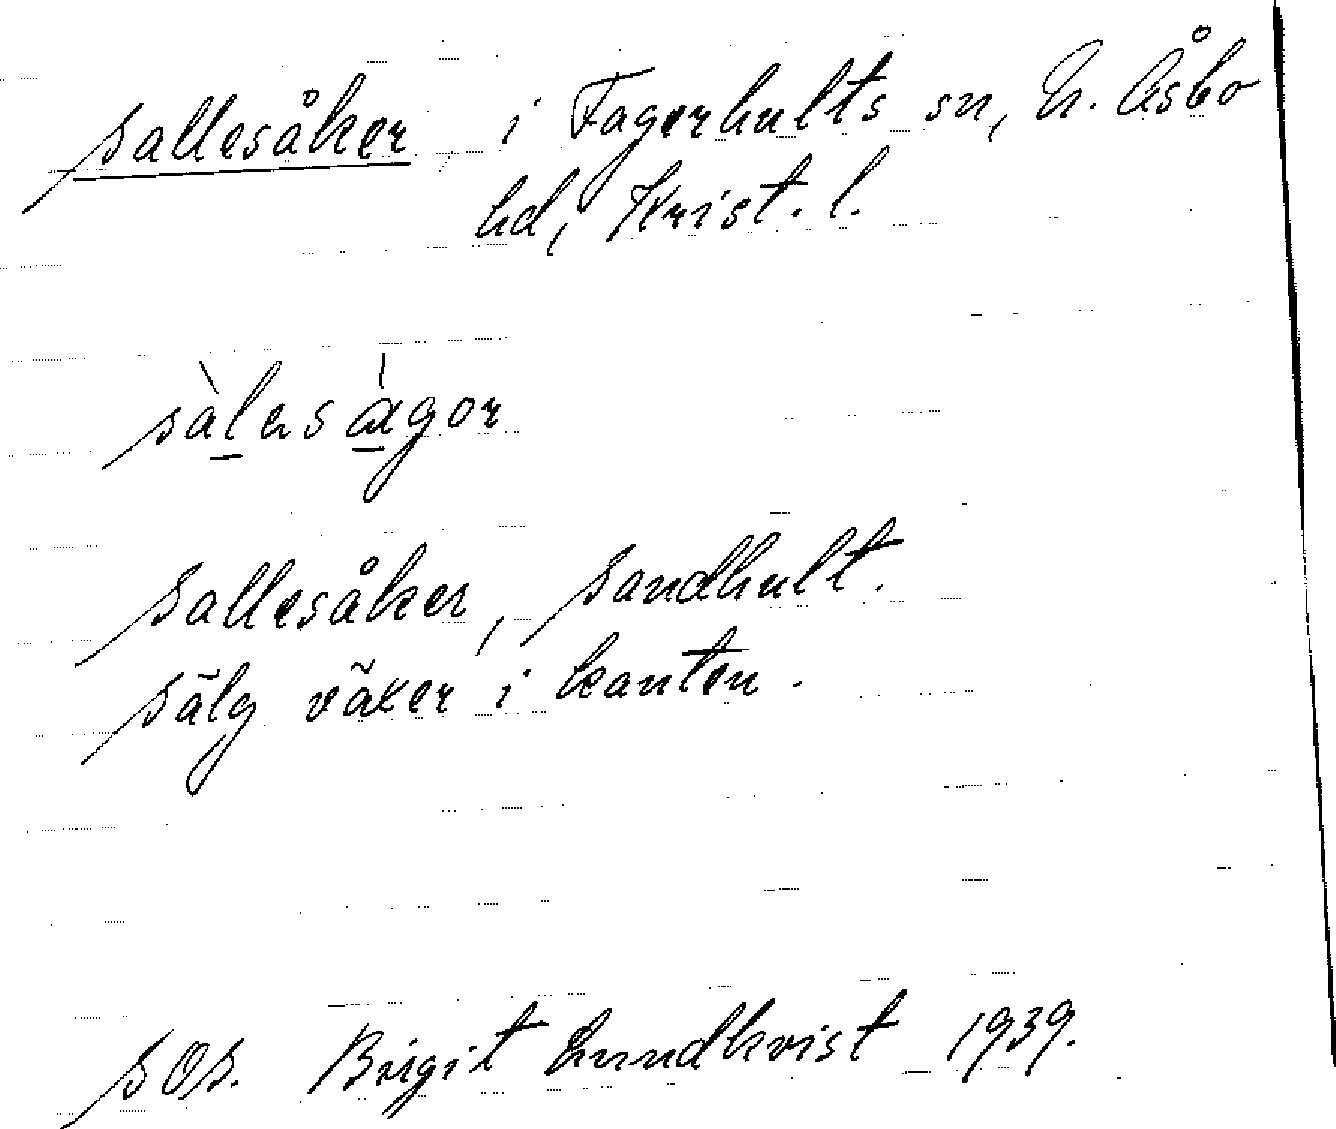 Sallesåker i Fagerhults sn, N. Åsbo
hd, Krist. l.
sàlesàgor
Sallesåker, Sandhult.
Sälg växer i kanten.
SOS. Birgit Lundkvist 1939.